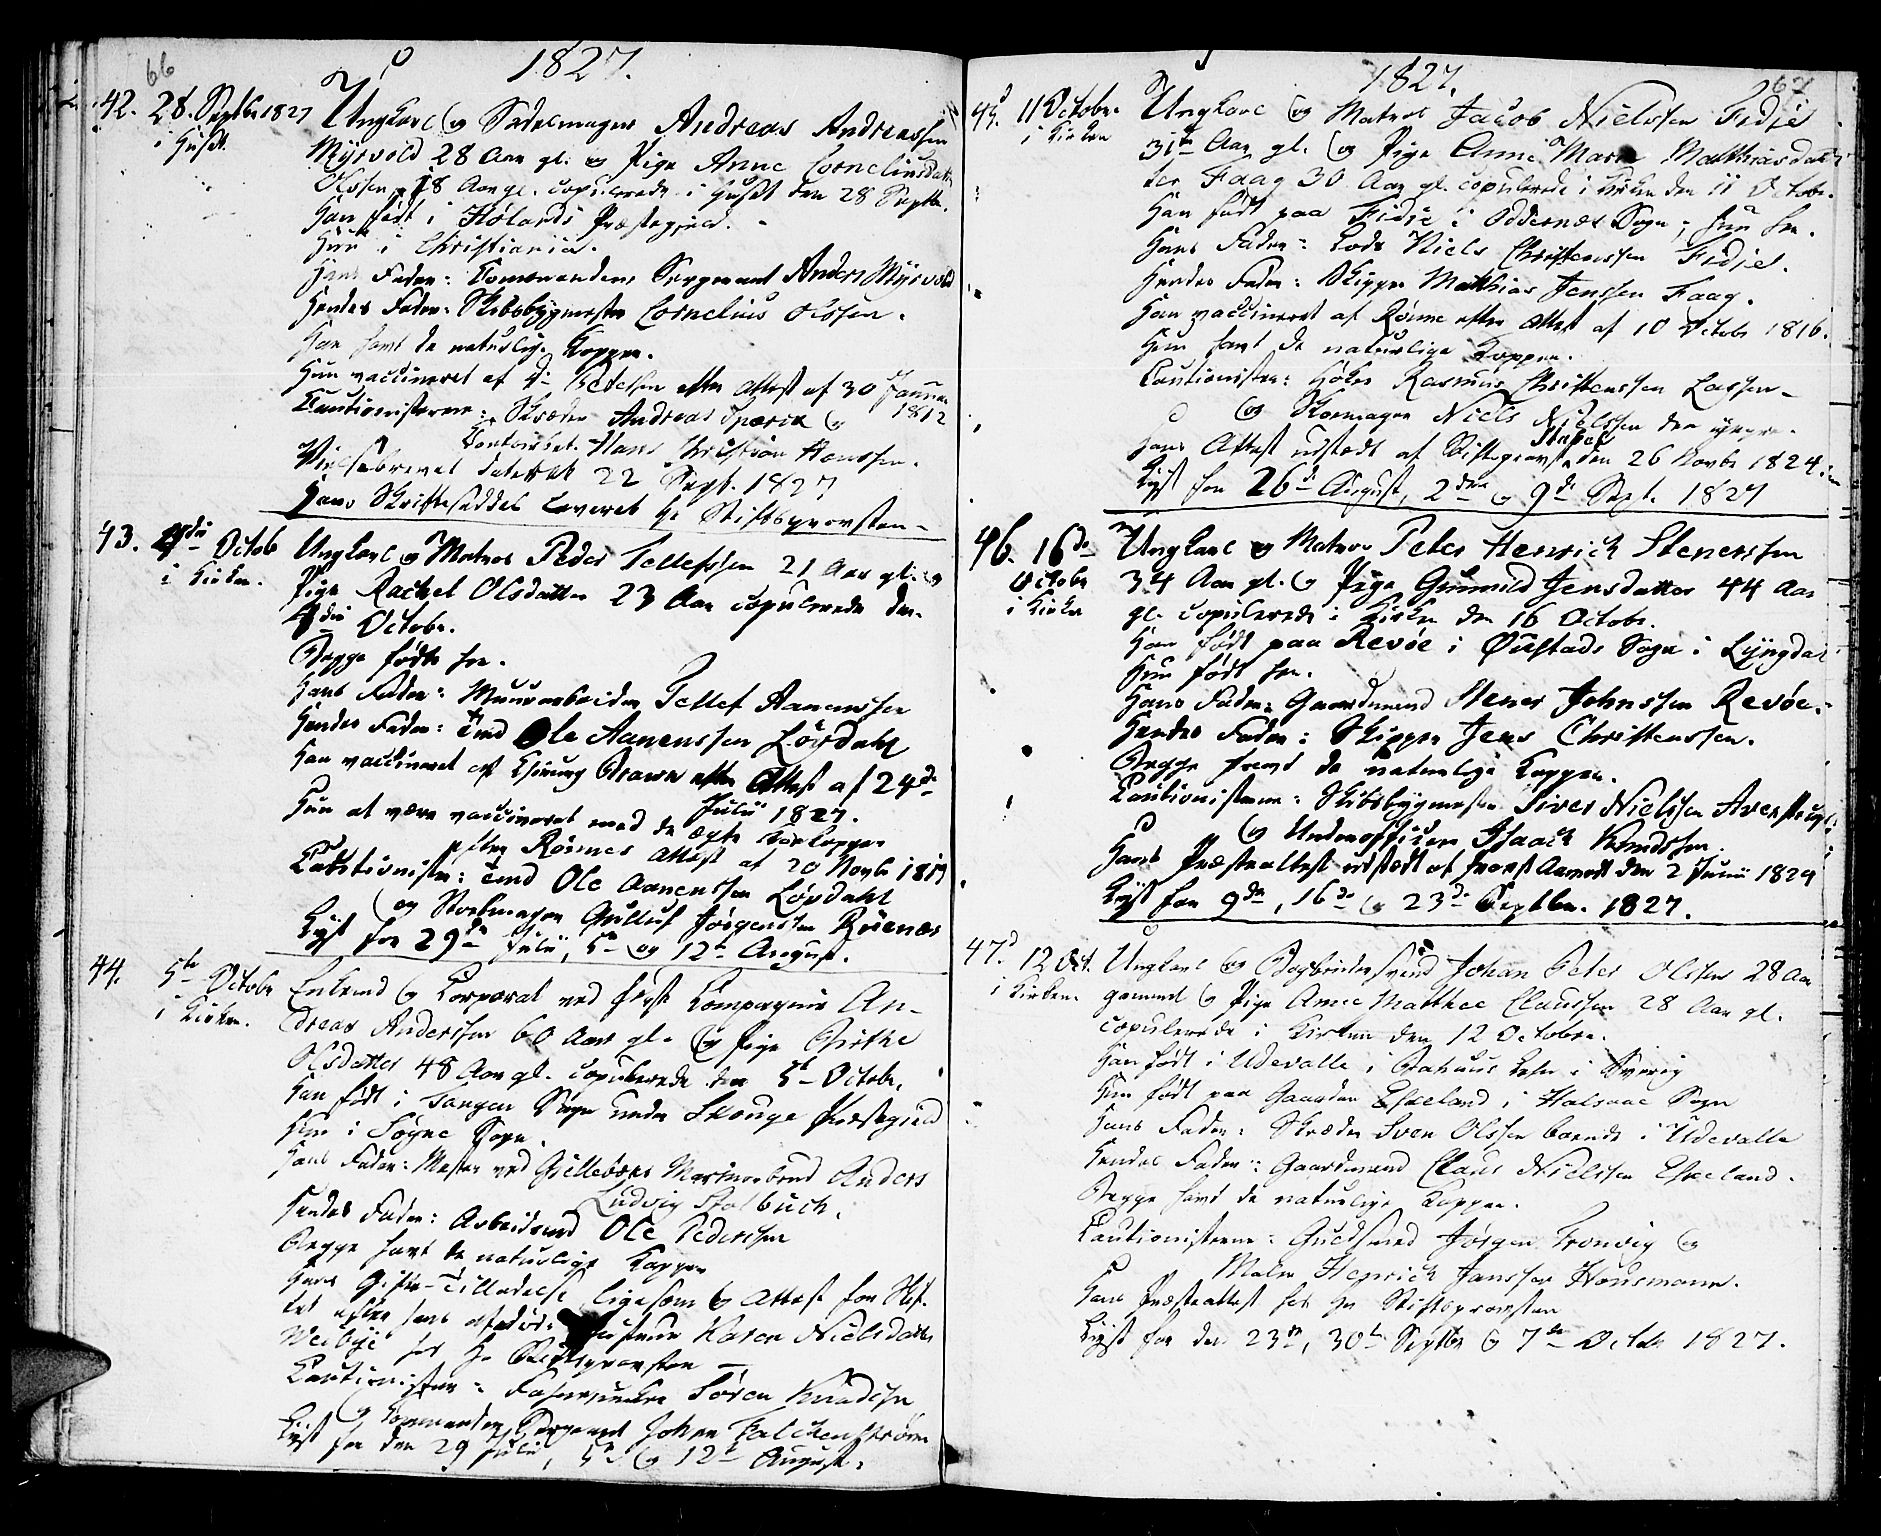 66
1827.
42. 28. Septbr 1827
i Huset.
Ungkarl og Sadelmager Andreas Andreassen
Myrvold 28 Aar gl. og Pige Anne Corneliusdatter
Olssen 18 Aar gl. copulerede i Huset den 28 Septbr.
Han født i Hølands Præstegield.
Hun i Christiania.
Hans Fader: Commanderer Sergeant Anders Myrvold
Hendes Fader: Skibsbygmester Cornelius Olssen.
Han havt de naturlige Kopper.
Hun vaccineret af Petersen efter Attest af 30 Januar
1812
Cautionisterne: Skræder Andreas Sparre og
Contorist Hans Christian Hanssen.
Vielsebrevet dateret 22 Sept. 1827
Hans Skriftesæddel leveret Hr Stiftsprovsten
43. 4de Octob
i Kirken.
Ungkarl og Matros Peder Tellefssen 21 Aar gl. og
Pige Rachel Olsdatter 23 Aar copulerede den
4de Octobr.
Begge fødte her.
Hans Fader: Muurarbeider Tellef Aanenssen
Hendes Fader: Ole Aanenssen Løvdahl
Han vaccineret af Chirurg Brawn efter Attest af 24de
Julii 1827.
Hun at være vaccineret med de ægte Kokopper
efter Röimes Attest af 20 Novbr 1819
Cautionister: Ole Aanenssen Løvdahl
og Skomager Gulluf Jørgenssen Rüenæs
Lyst for 29de Julii, 5te og 12te August.
44. 5te Octobr
i Kirken.
Enkemd og Corporal ved første Compagnie An-
dreas Anderssen 60 Aar gl. og Pige Birthe
Olsdatter 48 Aar gl. copulerede den 5te Octobr.
Han født i Tangen Sogn under Skouge Præstegield
Hun i Søgne Sogn.
Hans Fader: Mester ved Gjellebæks Marmorbrud Anders
Ludvig Stolbuch.
Hendes Fader: Arbeidsmd Ole Pederssen
Begge havt de naturlige Kopper
Hans Gifte-Tilladelse ligesom og Attest for Skif-
tet efter hans afdøde Hustrue Karen Nielsdatter
Weibye hos Hr Stiftsprovsten
Cautionister: Søren Knudssen
og Commandeer Sergeant Johan Falckenstrøm
Lyst for den 29 Julii, 5te og 12te August.
67
1827.
45. 11 Octobr.
i Kirken
Ungkarl og Matros Jacob Nielssen Fidje
31te Aar gl. og Pige Anne Marie Matthiasdat-
ter Faag 30 Aar gl. copulerede i Kirken den 11 Octobr.
Han født paa Fidje i Oddernæs Sogn; hun her.
Hans Fader: Lods Niels Christenssen Fidje.
Hendes Fader: Skipper Matthias Jenssen Faag.
Han vaccineret af Röime efter Attest af 10 Octobr 1816.
Hun havt de naturlige Kopper.
Cautionister: Høker Rasmus Christenssen Lassen
og Skomager Niels Nielssen den yngre.
Hans Attest udstedt af Stiftsprovst Stabel den 26 Novbr 1824.
Lyst for 26de August, 2den og 9de Sept. 1827
46. 16de
Octobr
i Kirken
Ungkarl og Matros Peter Henrich Stenerssen
34 Aar gl. og Pige Gunnild Jensdatter 44 Aar
gl. copulerede i Kirken den 16 Octobr.
Han født paa Revøe i Øustads Sogn i Lyngdal
Hun født her.
Hans Fader: Gaardmand Stener Johnssen Revøe.
Hendes Fader: Skipper Jens Christenssen.
Begge havt de naturlige Kopper.
Cautionisterne: Skibsbygmester Siver Nielssen Averstrup
og Underofficeer Isaach Knudssen.
Hans Præsteattest udstædt af Provst Aamodt den 2 Junii 1824
Lyst for 9de, 16de og 23de Septbr. 1827.
47. 12 Oct.
i Kirken
Ungkarl og Bogbindersvend Johan Peter Olssen 28 Aar
gammel og Pige Anne Matthea Claussen 28 Aar gl.
copulerede i Kirken den 12 Octobre.
Han født i Udevalla i Bahuus Lehn i Sverig
Hun født paa Gaarden Eskeland i Halsaae Sogn
Hans Fader: Skræder Sven Olssen boende i Udevalla
Hendes Fader: Gaardmand Claus Nielssen Eskeland.
Begge havt de naturlige Kopper.
Cautionisterne: Guldsmed Jørgen Tronvig og
Maler Henrich Janssen Housmann.
Hans Præsteattest hos Hr Stiftsprovsten
Lyst for den 23de, 30te Septbr og 7de Octbr 1827.